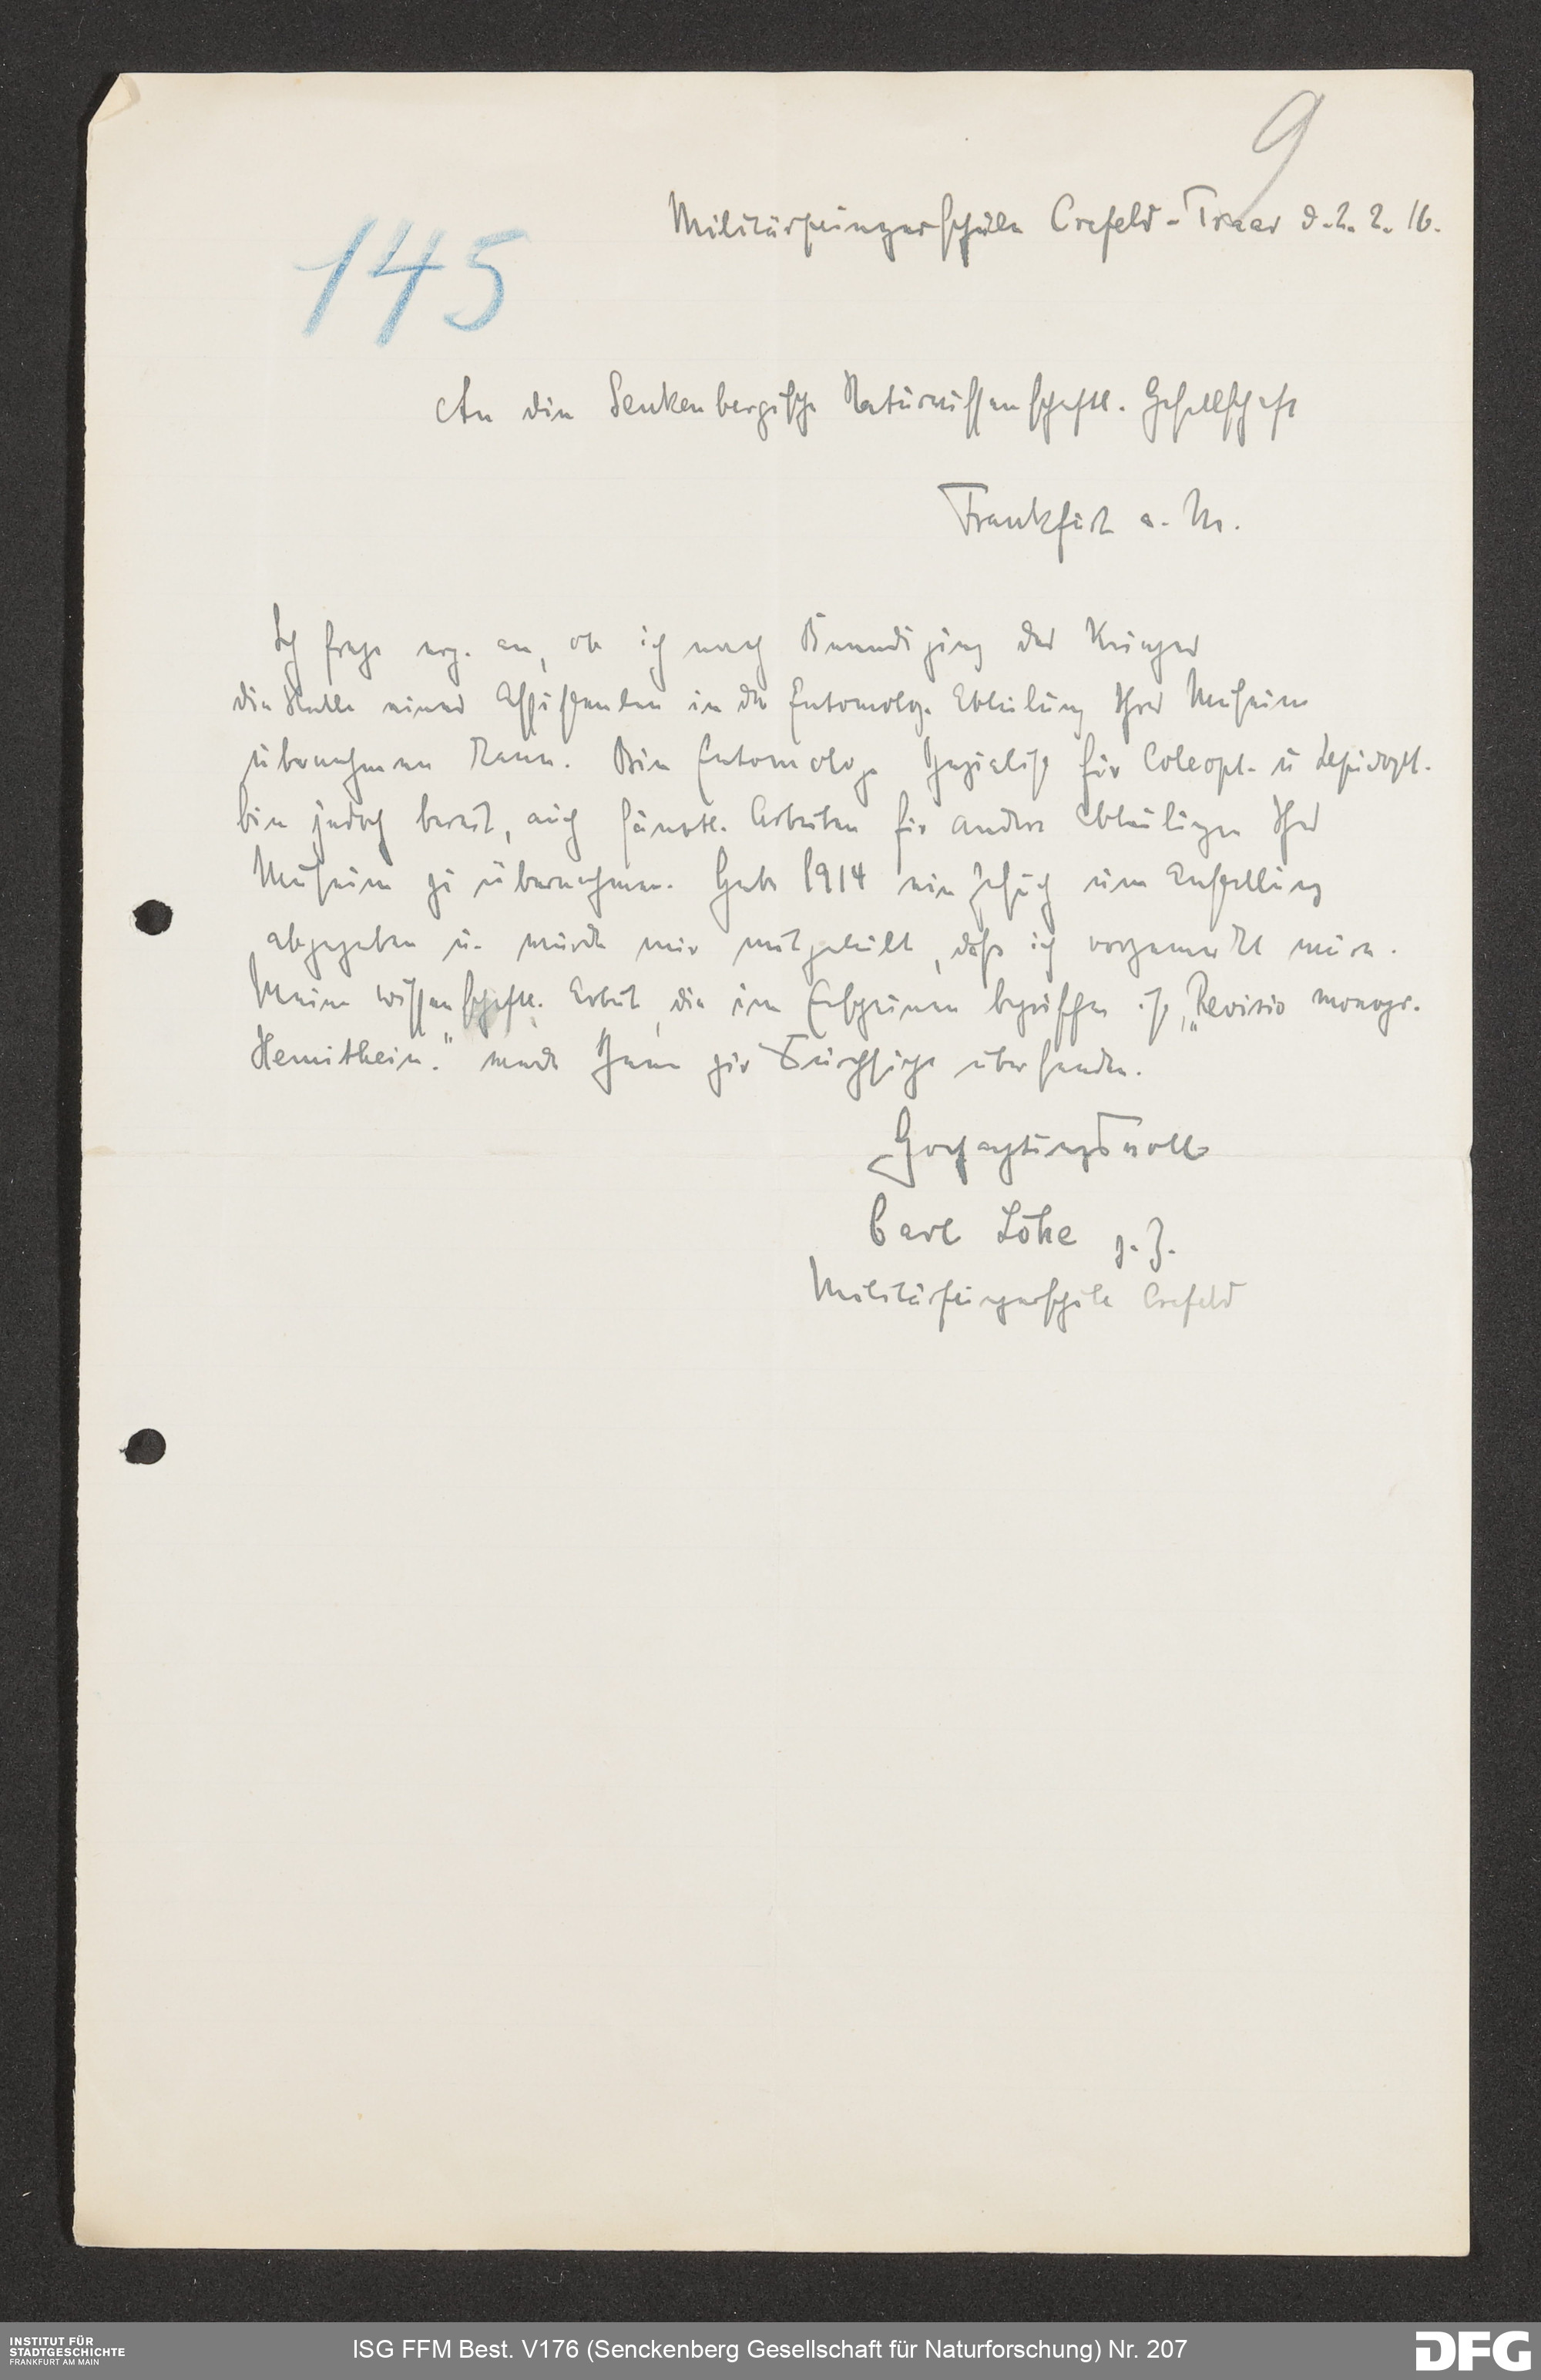 9
Militärfliegerschule Crefeld-Traar d. 2. 2. 16.
145
An die Senkenbergische Naturwissenschaftl. Gesellschaft
Frankfurt a. M.
Ich frage erg. an, ob ich nach Beendigung des Krieges
die Stelle eines Assistenten in der Entomolog. Abteilung Ihres Museums
übernehmen kann. Bin Entomolog. Spezialist für Coleopt. u Lepidopt.
bin jedoch bereit, auch sämtl. Arbeiten für andere Abteilungen Ihres
Museums zu übernehmen. Habe 1914 ein Gesuch um Anstellung
abgegeben u. wurde mir mitgeteilt, daß ich vorgemerkt wäre.
Meine wissenschaftl. Arbeit, die im Erscheinen begriffen ist, „Revisio monogr.
Hemithein." werde Ihnen zur Durchsicht übersenden.
Hochachtungsvoll
Carl Löhe z. Z.
Militärfliegerschule Crefeld
INSTITUT FÜR
STADTGESCHICHTE
FRANKFURT AM MAIN
ISG FFM Best. V176 (Senckenberg Gesellschaft für Naturforschung) Nr. 207
DFG